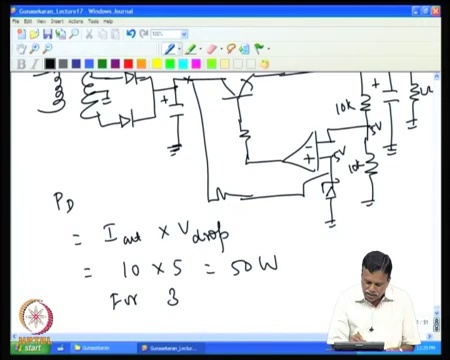 Gunasekaran_Lecture17 - Windows Journal
File Edit View Insert Actions Tools Help
100%
B I
+
+
10k
5V
+
5V
10k
P_D
= I_out × V_drop
= 10 × 5 = 50 W
For 3
NPTEL
start
Gunasekaran
Gunasekaran_Lec...